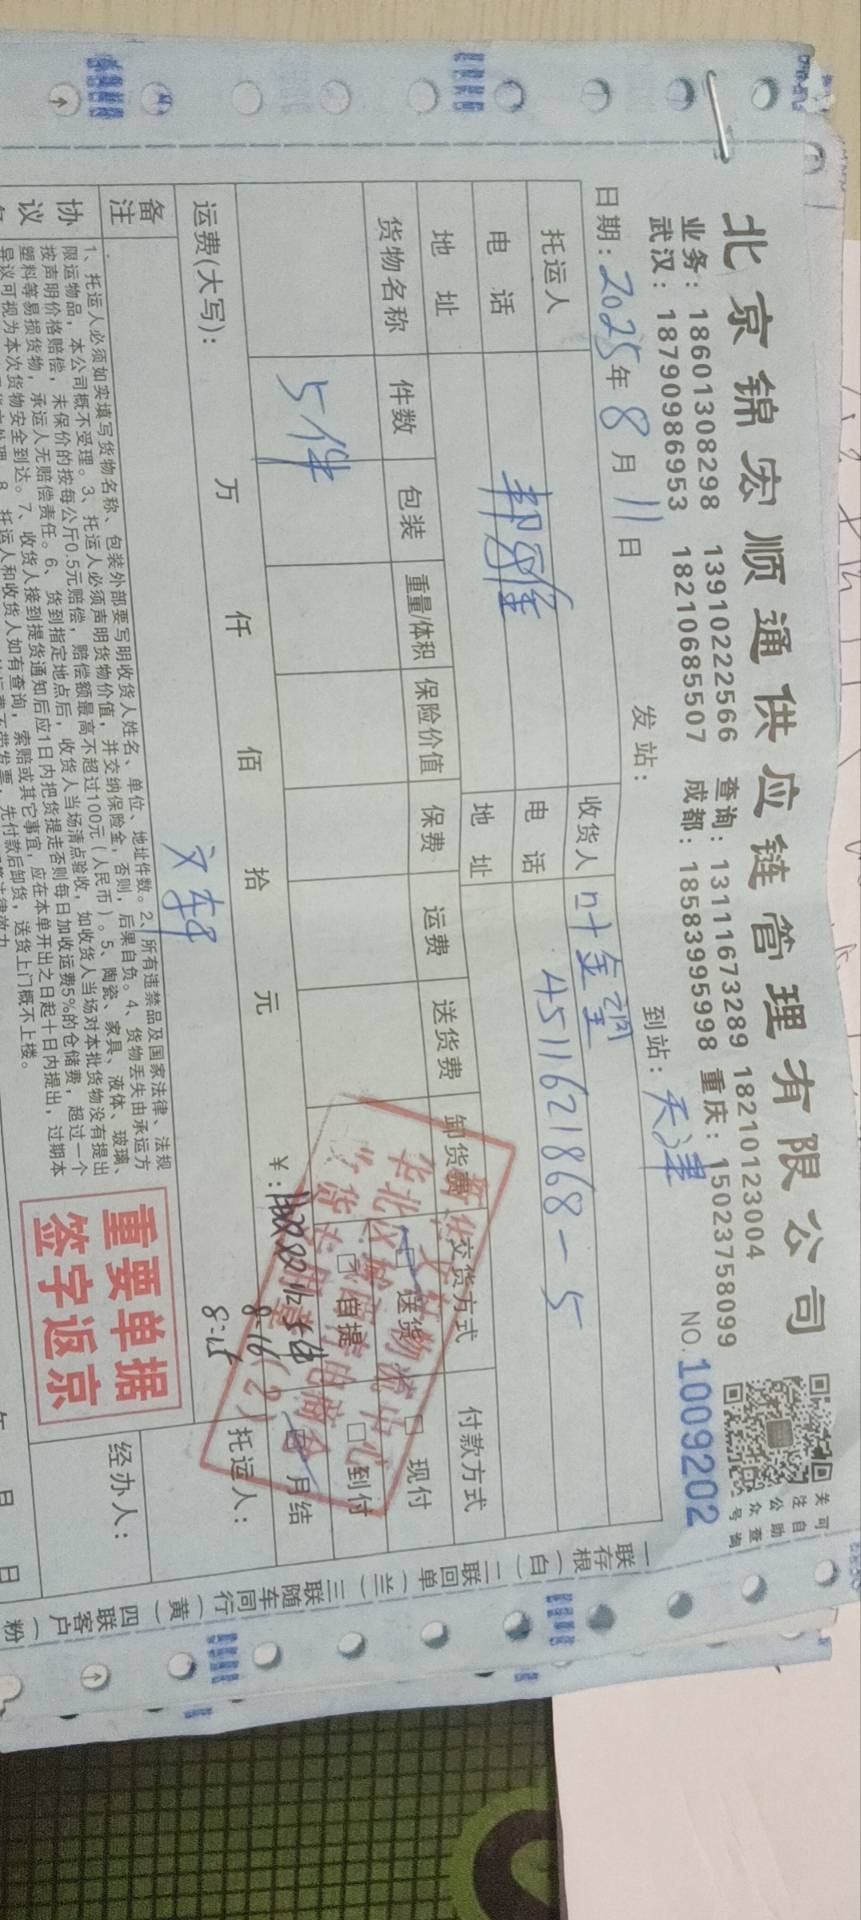 北京锦宏顺通供应链管理有限公司
关注公众号
可自助查询
业务：18601308298 13910222566 查询：13111673289 18210123004
武汉：18790986953 18210685507 成都：18583995998 重庆：15023758099
NO.1009202
日期：2025年8月11日 发站： 到站：天津
托运人 收货人 叶金
电话 电话 4511621868-5
地址 地址
货物名称 件数 包装 重量/体积 保险价值 保费 运费 送货费 卸货费 交货方式 付款方式
5件 送货 自提 现付 到付 月结
运费(大写)： 万 仟 佰 拾 元 ¥：
8-16
8-15
托运人：
备注 文轩
经办人：
重要单据
签字返京
协议
1、托运人必须如实填写货物名称、包装外部要写明收货人姓名、单位、地址件数。2、所有违禁品及国家法律、法规
限运物品，本公司概不受理。3、托运人必须声明货物价值，并交纳保险金，否则，后果自负。4、货物丢失由承运方
按声明价格赔偿，未保价的按每公斤0.5元赔偿，赔偿额最高不超过100元（人民币）。5、陶瓷、家具、液体、玻璃、
塑料等易损货物，承运人无赔偿责任。6、货到指定地点后，收货人当场清点验收，如收货人当场对本批货物没有提出
异议可视为本次货物安全到达。7、收货人接到提货通知后应1日内把货提走否则每日加收运费5%的仓储费，超过一个
8、托运人和收货人如有查询，索赔或其它事宜，应在本单开出之日起十日内提出，过期本
发票，先付款后卸货，送货上门概不上楼。
年 日 日
一联存根（白）二联回单（兰）三联随车同行（黄）四联客户（粉